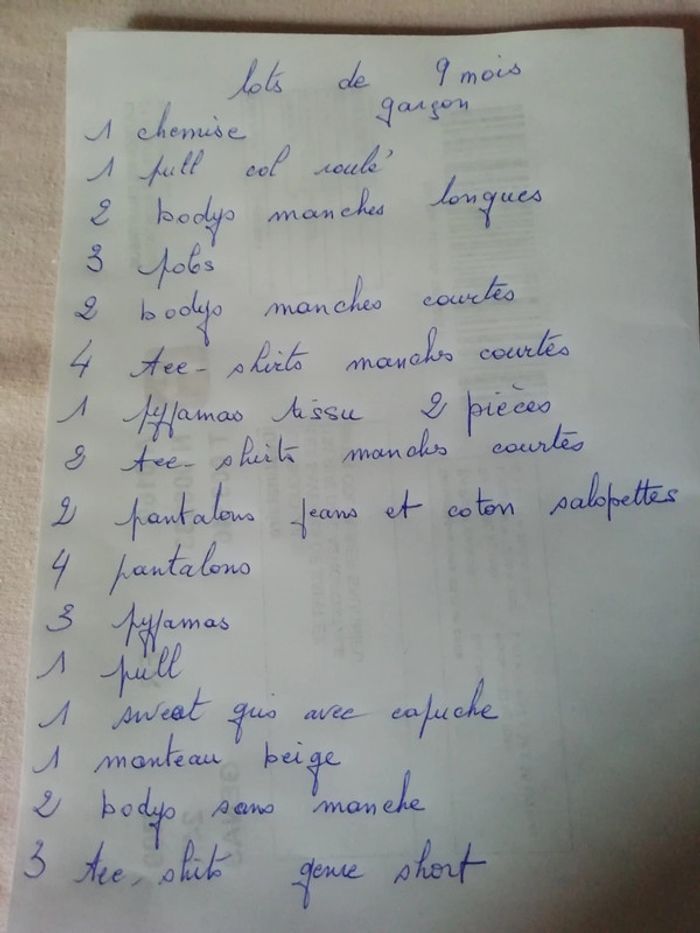 lots de 9 mois
garçon
1 chemise
1 pull col roulé
2 bodys manches longues
3 polos
2 bodys manches courtes
4 tee-shirts manches courtes
1 pyjamas tissu 2 pièces
2 tee-shirts manches courtes
2 pantalons jeans et coton salopettes
4 pantalons
3 pyjamas
1 pull
1 sweat gris avec capuche
1 manteau beige
2 bodys sans manche
3 tee-shits genre short